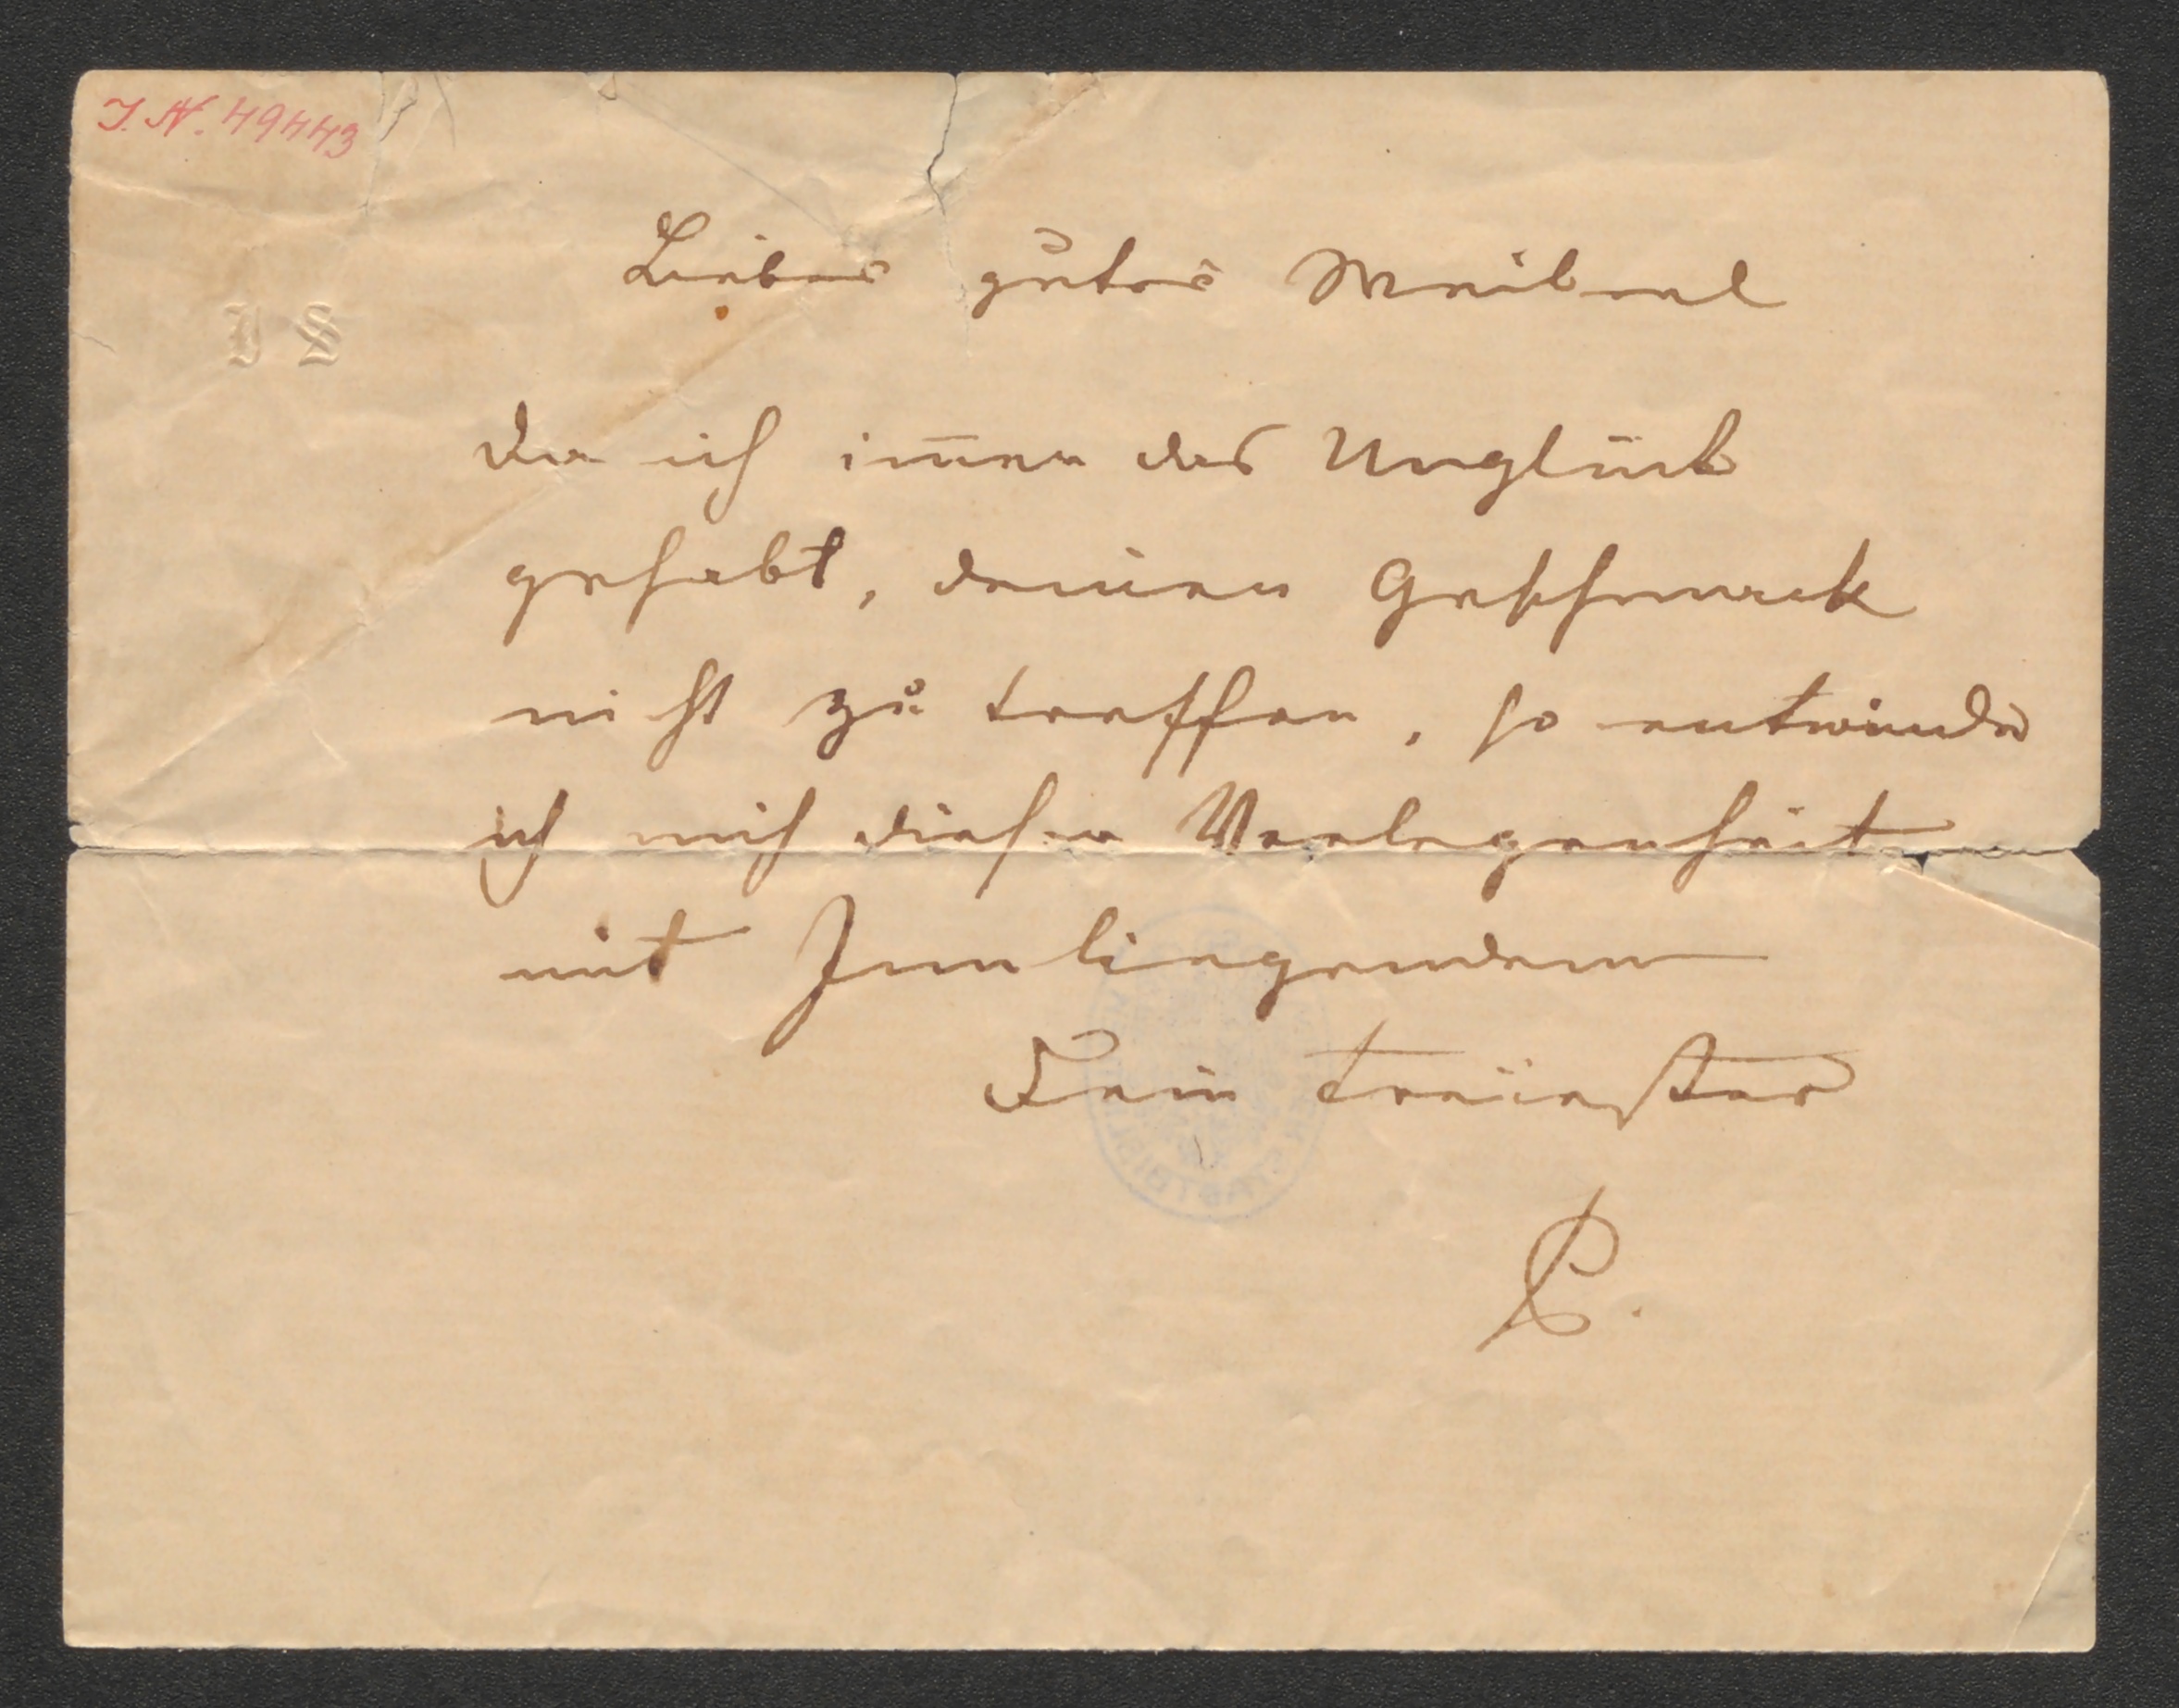 I. N. 49443
Liebes gutes Weiberl
J S
Da ich im̅er das Unglück
gehabt, deinen Geschmack
nicht zu treffen, so entwinde
ich mich dieser Verlegenheit
mit Innliegendem
Dein treuester